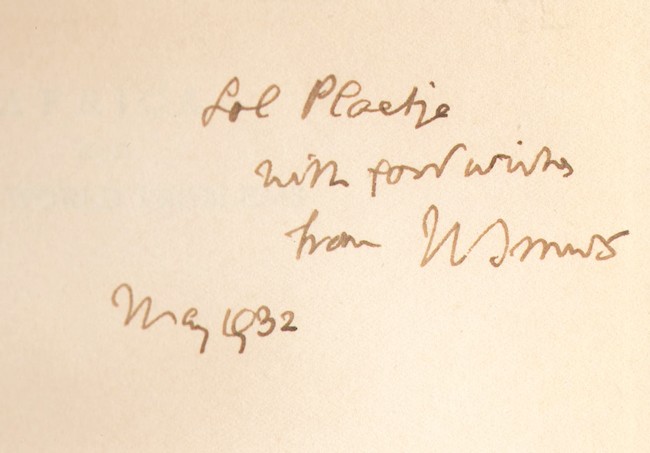 Sol Plaatje
with good wishes
from Smuts
May 1932